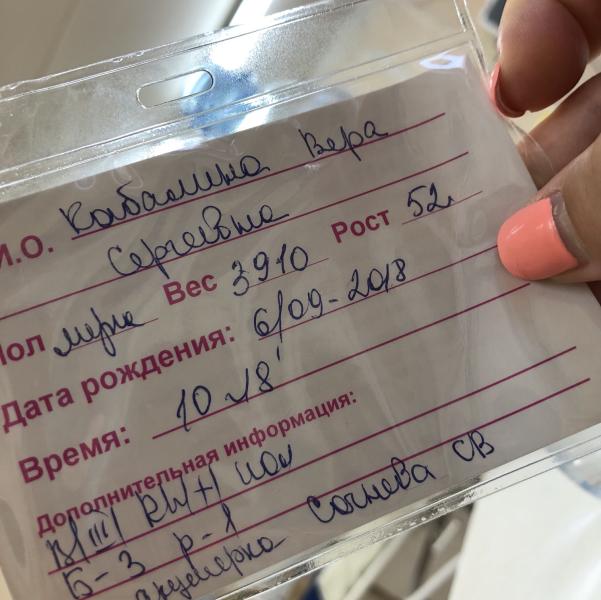 И.О. Кабалина Вера
Сергеевна
Пол Вес 3910 Рост 52
Дата рождения: 6/09-2018
Время: 10 18'
Дополнительная информация:
B/III/ Rh/+/
Б-3 р-1
акушерка СВ